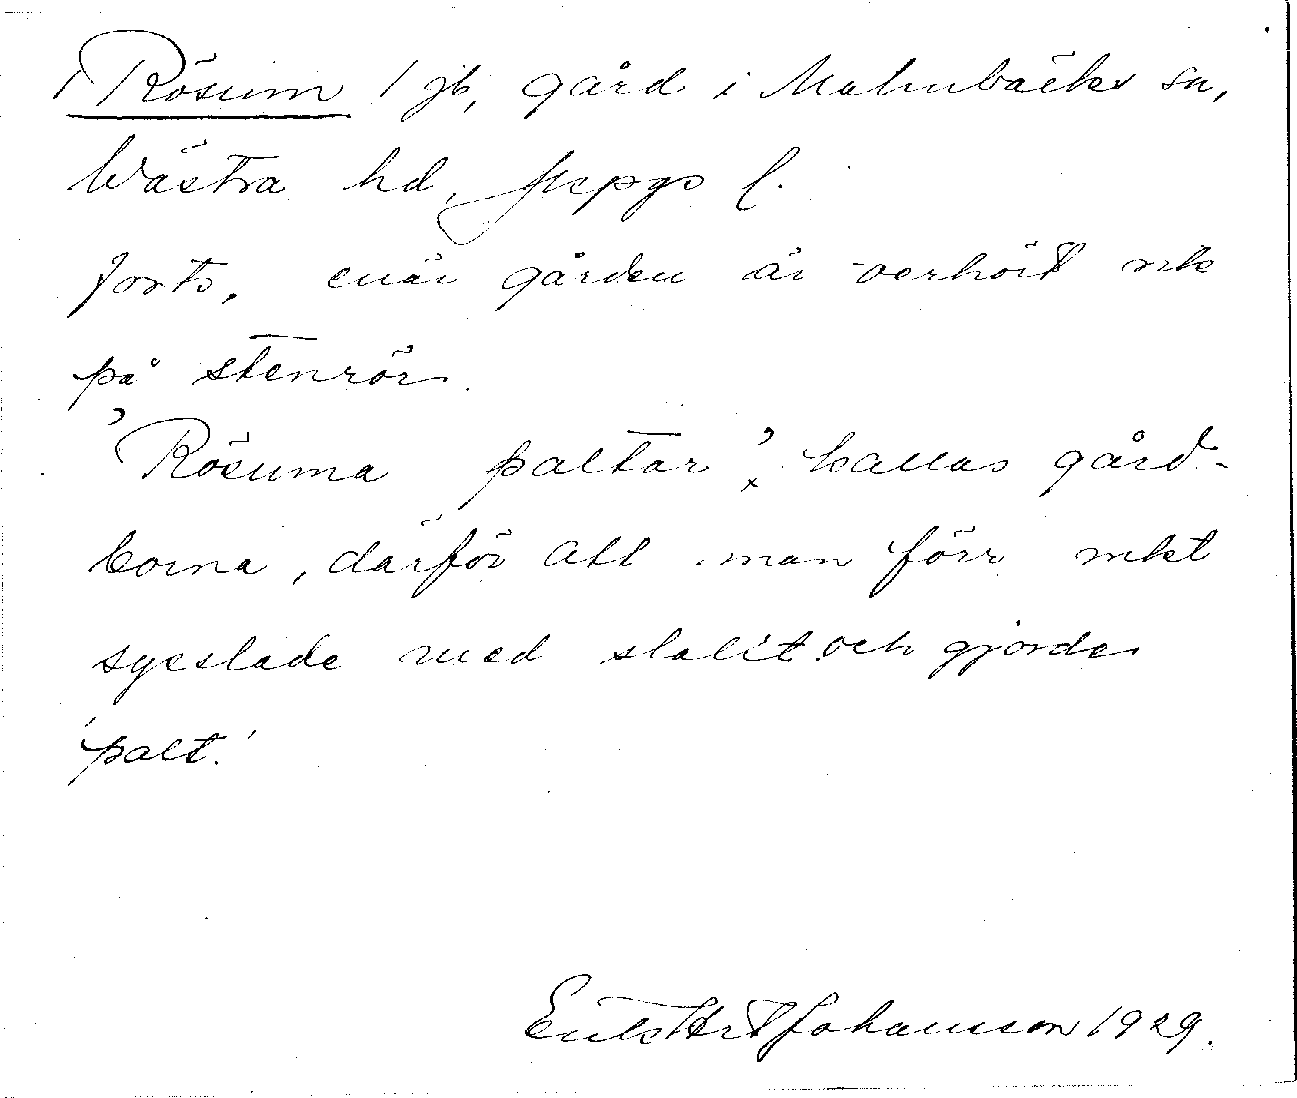 Rösum / jb, gård i Malmbäcks sn,
Västra hd, Jkpgs l.
forts. enär gården är oerhört rik
på stenrör.
"Rösuma paltar", kallas gård-
borna, därför att man förr mkt
sysslade med slakt och gjorde
'palt.'
Johansson 1929.